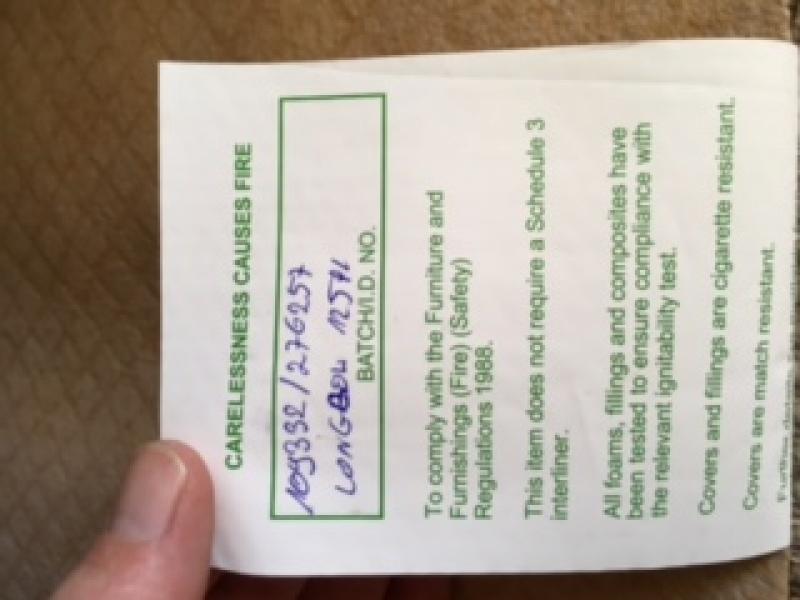 CARELESSNESS CAUSES FIRE
109332/276257
LONGBOW 12571
BATCH/I.D. NO.
To comply with the Furniture and
Furnishings (Fire) (Safety)
Regulations 1988.
This item does not require a Schedule 3
interliner.
All foams, fillings and composites have
been tested to ensure compliance with
the relevant ignitability test.
Covers and fillings are cigarette resistant.
Covers are match resistant.